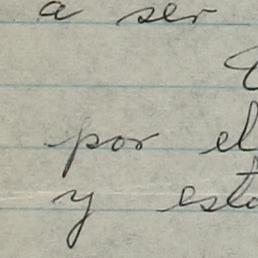 a ser
por el
y esto